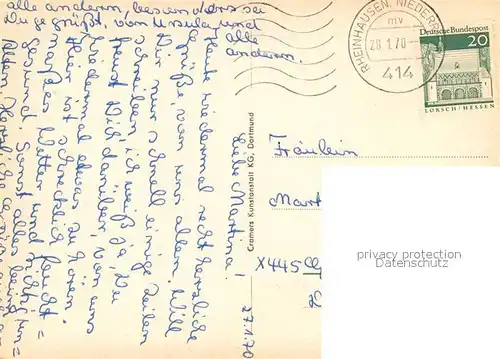 alle anderen, besonders sei
Du gegrüßt, von Ursula, und
alle
anderen.
27.1.70
Liebe Martina!
Heute wiedermal recht herzliche
Grüße, von uns allen. Will
nun schnell einige Zeilen
schreiben, ich weiß ja, Du
freust Dich darüber, von uns
wiedermal etwas zu hören.
Hier ist schreckliches
Wetter, feucht
und
Sonst alles beim
Cramers Kunstanstalt KG, Dortmund
RHEINHAUSEN, NIEDERR
mv
28.1.70
414
Deutsche Bundespost
20
LORSCH/HESSEN
Fräulein
Mart
X445
privacy protection
Datenschutz